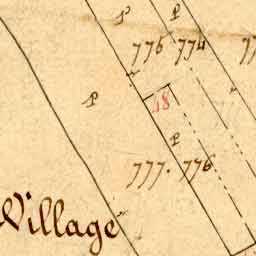 P P
776 774 77
P 18
P
777. 776
Village